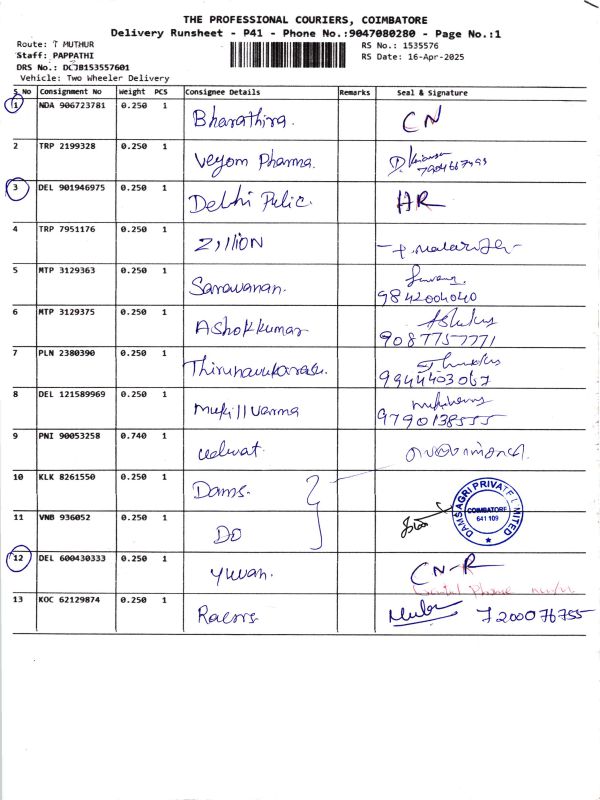 THE PROFESSIONAL COURIERS, COIMBATORE
Delivery Runsheet - P41 - Phone No.:9047080280 - Page No.:1
Route: T MUTHUR
RS No.: 1535576
Staff: PAPPATHI
RS Date: 16-Apr-2025
DRS No.: DCJB153557601
Vehicle: Two Wheeler Delivery
S No Consignment No Weight PCS Consignee Details Remarks Seal & Signature
1 NDA 906723781 0.250 1 Bharathira. CN
2 TRP 2199328 0.250 1 Veyom Pharma.
7904667493
3 DEL 901946975 0.250 1 Delhi Pulic. AR
4 TRP 7951176 0.250 1 Zillion
5 MTP 3129363 0.250 1 Saravanan.
9842004040
6 MTP 3129375 0.250 1 Ashokkumar
9087757771
7 PLN 2380390 0.250 1 Thirunavukarasu.
9944403067
8 DEL 121589969 0.250 1 Mukill Varma
9790138555
9 PNI 90053258 0.740 1
10 KLK 8261550 0.250 1 Dams.
DAMS AGRI PRIVATE LIMITED
COIMBATORE
641 109
11 VNB 936052 0.250 1 DO
12 DEL 600430333 0.250 1 Yuvan. CN-R
13 KOC 62129874 0.250 1 7200076755